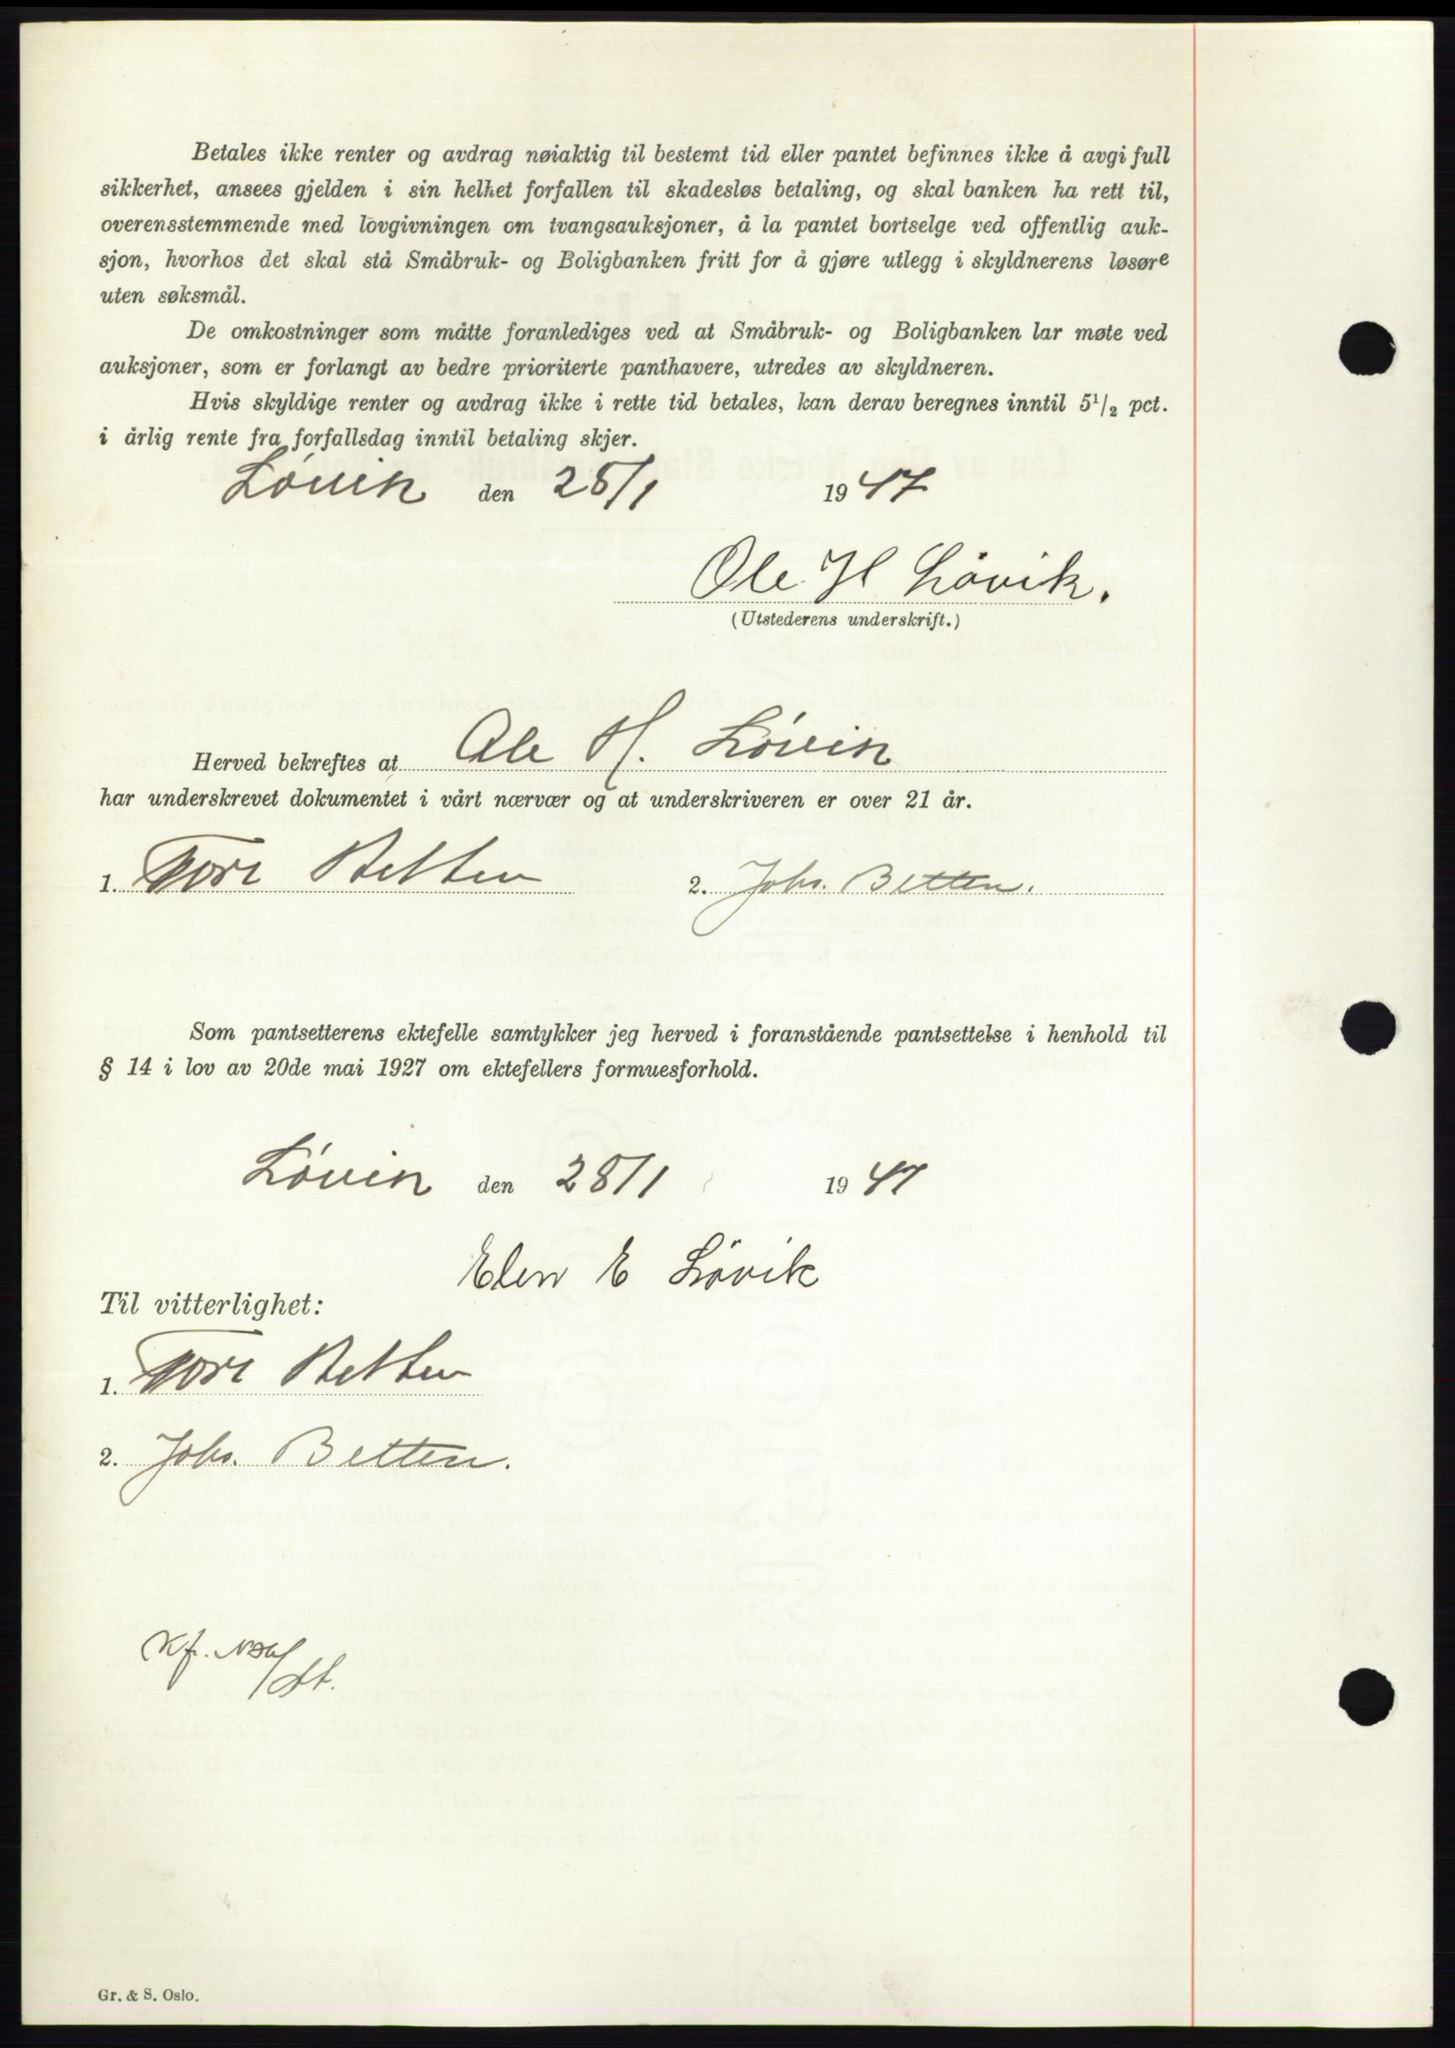 Betales ikke renter og avdrag nøiaktig til bestemt tid eller pantet befinnes ikke å avgi full
sikkerhet, ansees gjelden i sin helhet forfallen til skadesløs betaling, og skal banken ha rett til,
overensstemmende med lovgivningen om tvangsauksjoner, å la pantet bortselge ved offentlig auk-
sjon, hvorhos det skal stå Småbruk- og Boligbanken fritt for å gjøre utlegg i skyldnerens løsøre
uten søksmål.
De omkostninger som måtte foranlediges ved at Småbruk- og Boligbanken lar møte ved
auksjoner, som er forlangt av bedre prioriterte panthavere, utredes av skyldneren.
Hvis skyldige renter og avdrag ikke i rette tid betales, kan derav beregnes inntil 5 1/2 pct.
i årlig rente fra forfallsdag inntil betaling skjer.
Løvik den 28/1 1947
Ole H Løvik.
(Utstederens underskrift.)
Herved bekreftes at Ole H. Løvik
har underskrevet dokumentet i vårt nærvær og at underskriveren er over 21 år.
1. Tore Betten 2. Johs. Betten.
Som pantsetterens ektefelle samtykker jeg herved i foranstående pantsettelse i henhold til
§ 14 i lov av 20de mai 1927 om ektefellers formuesforhold.
Løvik den 28/1 1947
Elen E Løvik
Til vitterlighet:
1. Tore Betten
2. Johs. Betten.
Kf.
Gr. & S. Oslo.